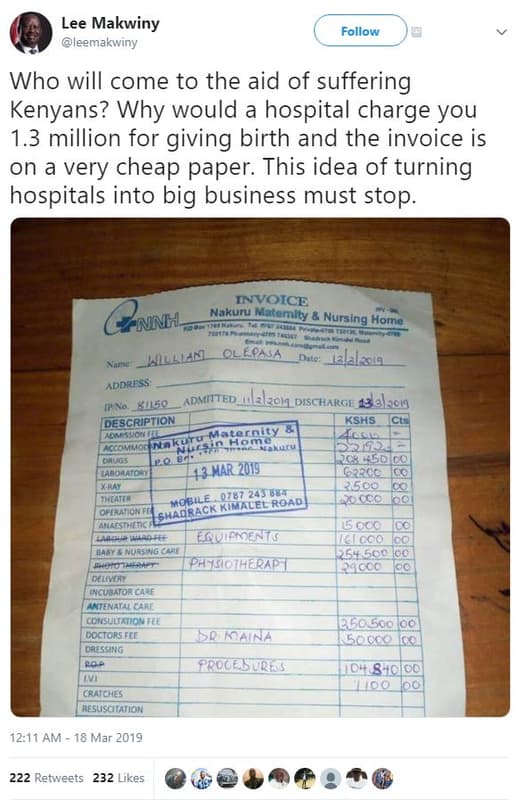 Lee Makwiny
@leemakwiny
Follow
Who will come to the aid of suffering
Kenyans? Why would a hospital charge you
1.3 million for giving birth and the invoice is
on a very cheap paper. This idea of turning
hospitals into big business must stop.
INVOICE
NNH
Nakuru Maternity & Nursing Home
Name: WILLIAM OLEPAJA Date: 12/2/2019
ADDRESS:
IP/No. 81150 ADMITTED 11/2/2019 DISCHARGE 13/3/2019
DESCRIPTION KSHS Cts
ADMISSION FEE
ACCOMMOD
DRUGS 208 450 00
LABORATORY 62200 00
X-RAY 2,500 00
THEATER 20 000 00
OPERATION FEE
ANAESTHETIC F 15 000 00
LABOUR WARD FEE EQUIPMENTS 161 000 00
BABY & NURSING CARE 254,500 00
PHOTO THERAPY PHYSIOTHERAPY 29000 00
DELIVERY
INCUBATOR CARE
ANTENATAL CARE
CONSULTATION FEE 250,500 00
DOCTORS FEE DR MAINA 50 000 00
DRESSING
P.O.P PROCEDURES 104 840 00
I.V.I 1100 00
CRATCHES
RESUSCITATION
Nakuru Maternity &
Nursin Home
P.O. B Nakuru
13 MAR 2019
MOBILE. 0787 243 884
SHADRACK KIMALEL ROAD
12:11 AM - 18 Mar 2019
222 Retweets 232 Likes